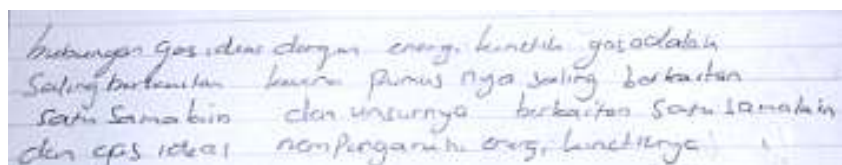 hubungan gas ideal dengan energi kinetik gas adalah
Saling berkaitan karena Rumus nya saling berkaitan
satu sama lain dan unsurnya berkaitan satu sama lain
dan gas ideal mempengaruhi energi kinetiknya